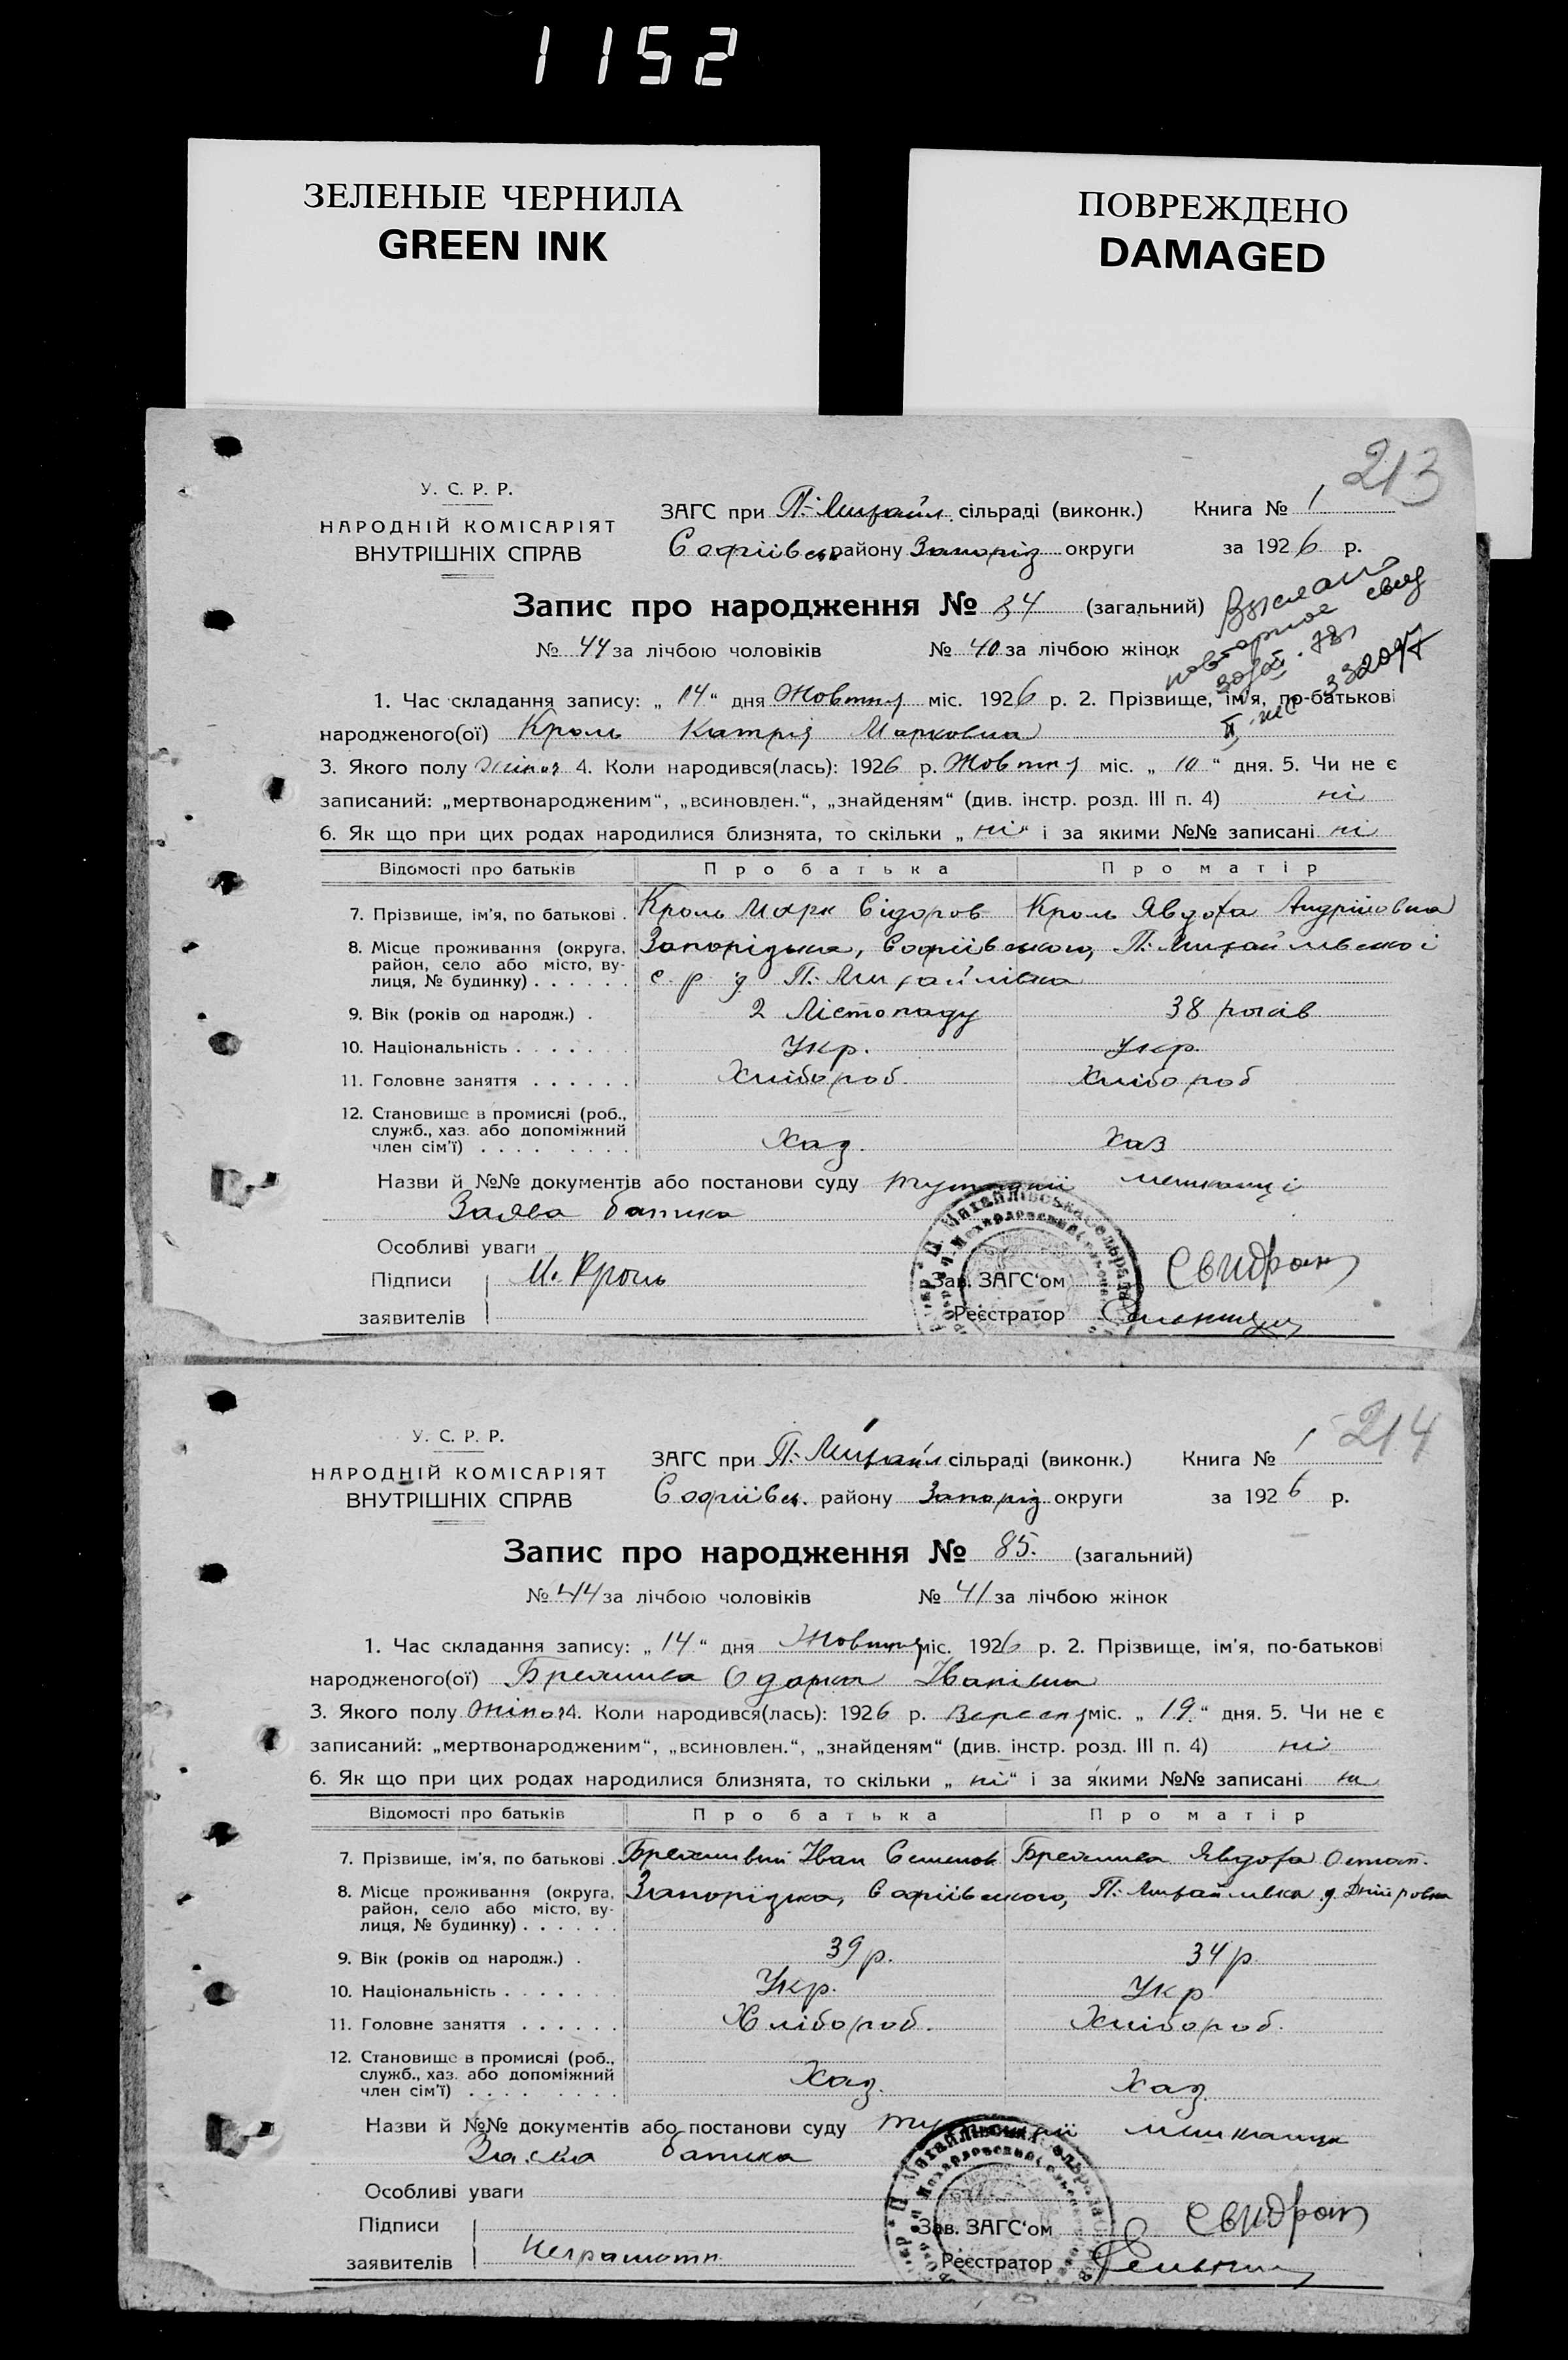 1152
ЗЕЛЕНЫЕ ЧЕРНИЛА
GREEN INK
ПОВРЕЖДЕНО
DAMAGED
213
У. С. Р. Р.
НАРОДНІЙ КОМІСАРІЯТ
ВНУТРІШНІХ СПРАВ
ЗАГС при П.-Михайл. сільраді (виконк.) Книга № 1
Софіївськ району Запоріз округи за 1926 р.
Запис про народження № 84 (загальний)
№ 44 за лічбою чоловіків № 40 за лічбою жінок
повторное
1. Час складання запису: „14“ дня Жовтня міс. 1926 р. 2. Прізвище, ім'я, по-батькові
народженого(ої) Кроль Катрія Марковна
3. Якого полу жіноч 4. Коли народився(лась): 1926 р. Жовтня міс. „10“ дня. 5. Чи не є
записаний: „мертвонародженим“, „всиновлен.“, „знайденям“ (див. інстр. розд. III п. 4) ні
6. Як що при цих родах народилися близнята, то скільки „ні“ і за якими №№ записані ні
Відомості про батьків Про батька Про матір
7. Прізвище, ім'я, по батькові . Кроль Марк Сідоров Кроль Явдоха Андріиовна
8. Місце проживання (округа, район, село або місто, вулиця, № будинку) . . . . . . Запорізька, Софіївського, П.-Михайлівської
с. р д П.-Михайлівка
9. Вік (років од народж.) . 2 Лістопаду 38 років
10. Національність . . . . . . Укр. Укр.
11. Головне заняття . . . . . . Хлібороб. Хлібороб
12. Становище в промислі (роб., служб., хаз. або допоміжний член сім'ї) . . . . . . . . Хаз. Хаз
Назви й №№ документів або постанови суду мешканці
Заява батька
Особливі уваги
Підписи М. Кроль Зав. ЗАГС'ом
заявителів Реєстратор
214
У. С. Р. Р.
НАРОДНІЙ КОМІСАРІЯТ
ВНУТРІШНІХ СПРАВ
ЗАГС при П.-Михайл сільраді (виконк.) Книга № 1
Софіївськ. району Запоріз округи за 1926 р.
Запис про народження № 85. (загальний)
№ 44 за лічбою чоловіків № 41 за лічбою жінок
1. Час складання запису: „14“ дня Жовтня міс. 1926 р. 2. Прізвище, ім'я, по-батькові
народженого(ої) Брехлива Одарка Іванівна
3. Якого полу жіноч 4. Коли народився(лась): 1926 р. Вересня міс. „19.“ дня. 5. Чи не є
записаний: „мертвонародженим“, „всиновлен.“, „знайденям“ (див. інстр. розд. III п. 4) ні
6. Як що при цих родах народилися близнята, то скільки „ні“ і за якими №№ записані ні
Відомості про батьків Про батька Про матір
7. Прізвище, ім'я, по батькові . Брехливий Іван Семенов Брехлива Явдоха Остап.
8. Місце проживання (округа, район, село або місто, вулиця, № будинку) . . . . . . Запорізька, Софіївського, П.-Михайлівка д. Дніпровка
9. Вік (років од народж.) . 39 р. 34 р.
10. Національність . . . . . . Укр. Укр
11. Головне заняття . . . . . . Хлібороб. Хлібороб.
12. Становище в промислі (роб., служб., хаз. або допоміжний член сім'ї) . . . . . . . . Хаз. Хаз.
Назви й №№ документів або постанови суду мешканці
Заява батька
Особливі уваги
Підписи Зав. ЗАГС'ом
заявителів Неграмотн. Реєстратор